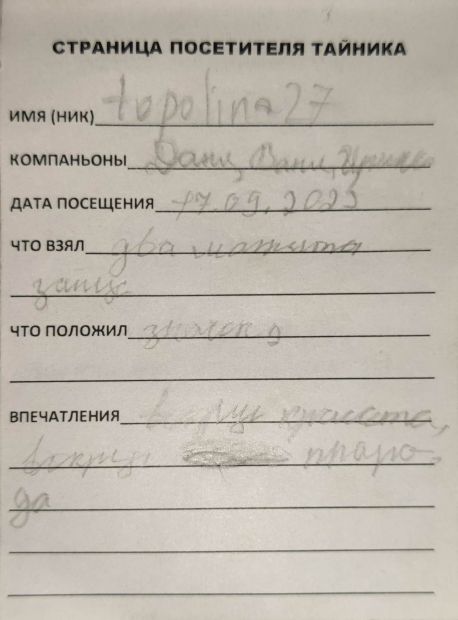 СТРАНИЦА ПОСЕТИТЕЛЯ ТАЙНИКА
ИМЯ (НИК) topolina27
КОМПАНЬОНЫ Даня, Ваня,
ДАТА ПОСЕЩЕНИЯ 17.09.2023
ЧТО ВЗЯЛ два магнита
заяц
ЧТО ПОЛОЖИЛ значок
ВПЕЧАТЛЕНИЯ вокруг красота,
вокруг
да